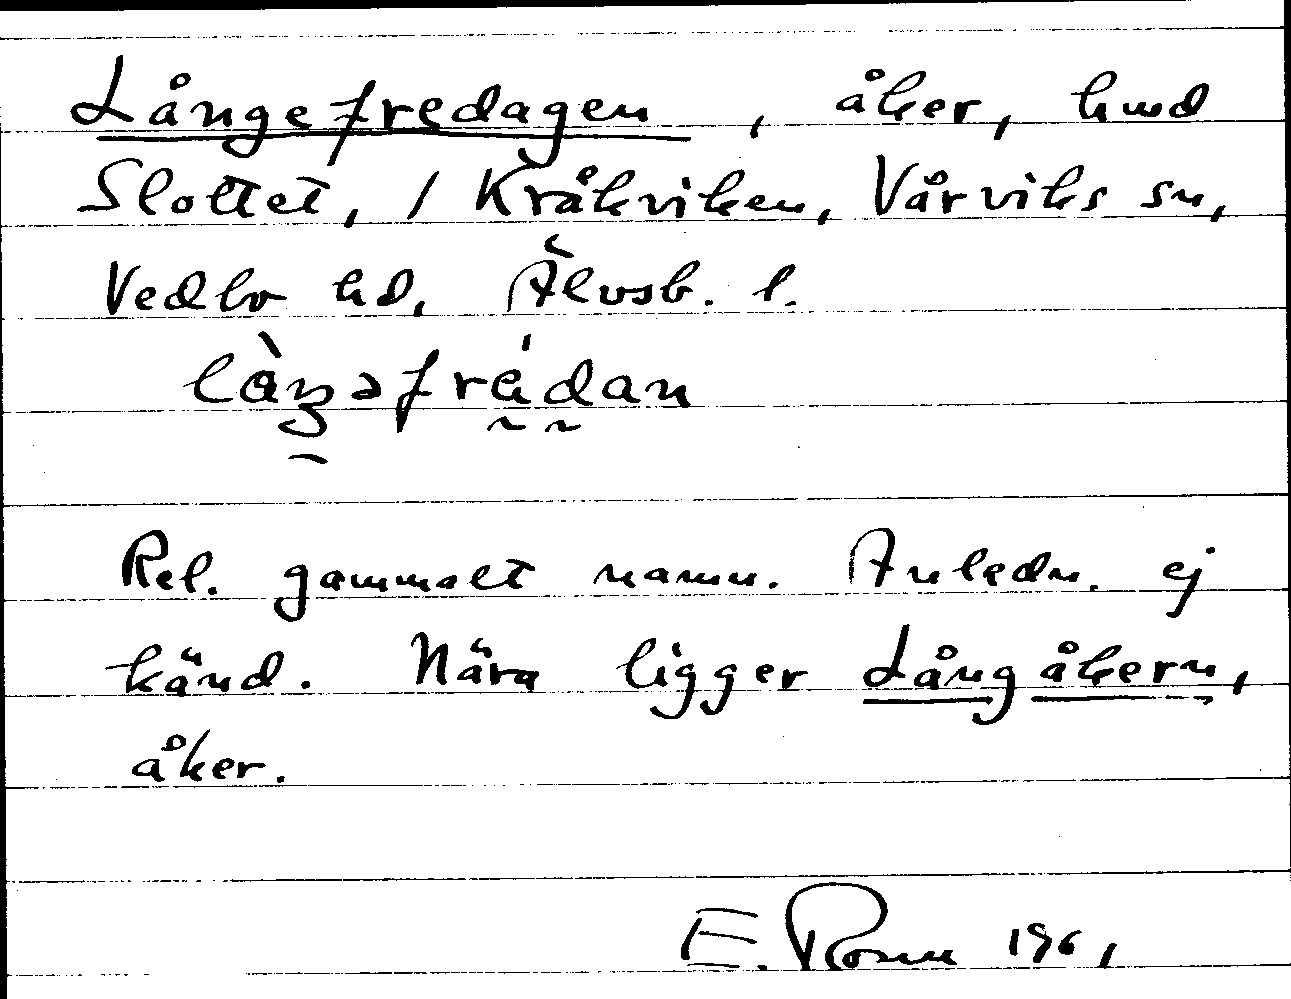 Långefredagen, åker, hmd
Slottet, / Kråkviken, Vårviks sn,
Vedbo hd, Älvsb. l.
là̀ŋəfrédan
Rel. gammalt namn. Anledn. ej
känd. Nära ligger Långåkern,
åker.
E. Ronn 1961